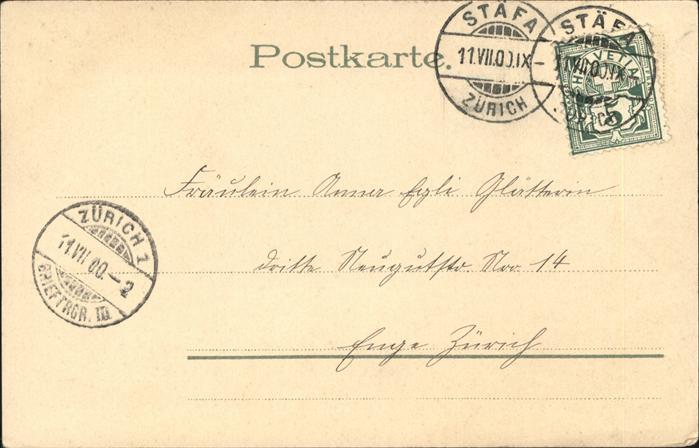 Postkarte.
STÄFA
11.VII.00.IX-
ZÜRICH
STÄFA
11.VII.00.IX
HELVETIA
5
Fräulein Anna Egli Glätterin
dritte Neugutstr. Nro. 14
Enge Zürich
ZÜRICH 1
11.VII.00.-2
BRIEFTRGR. III